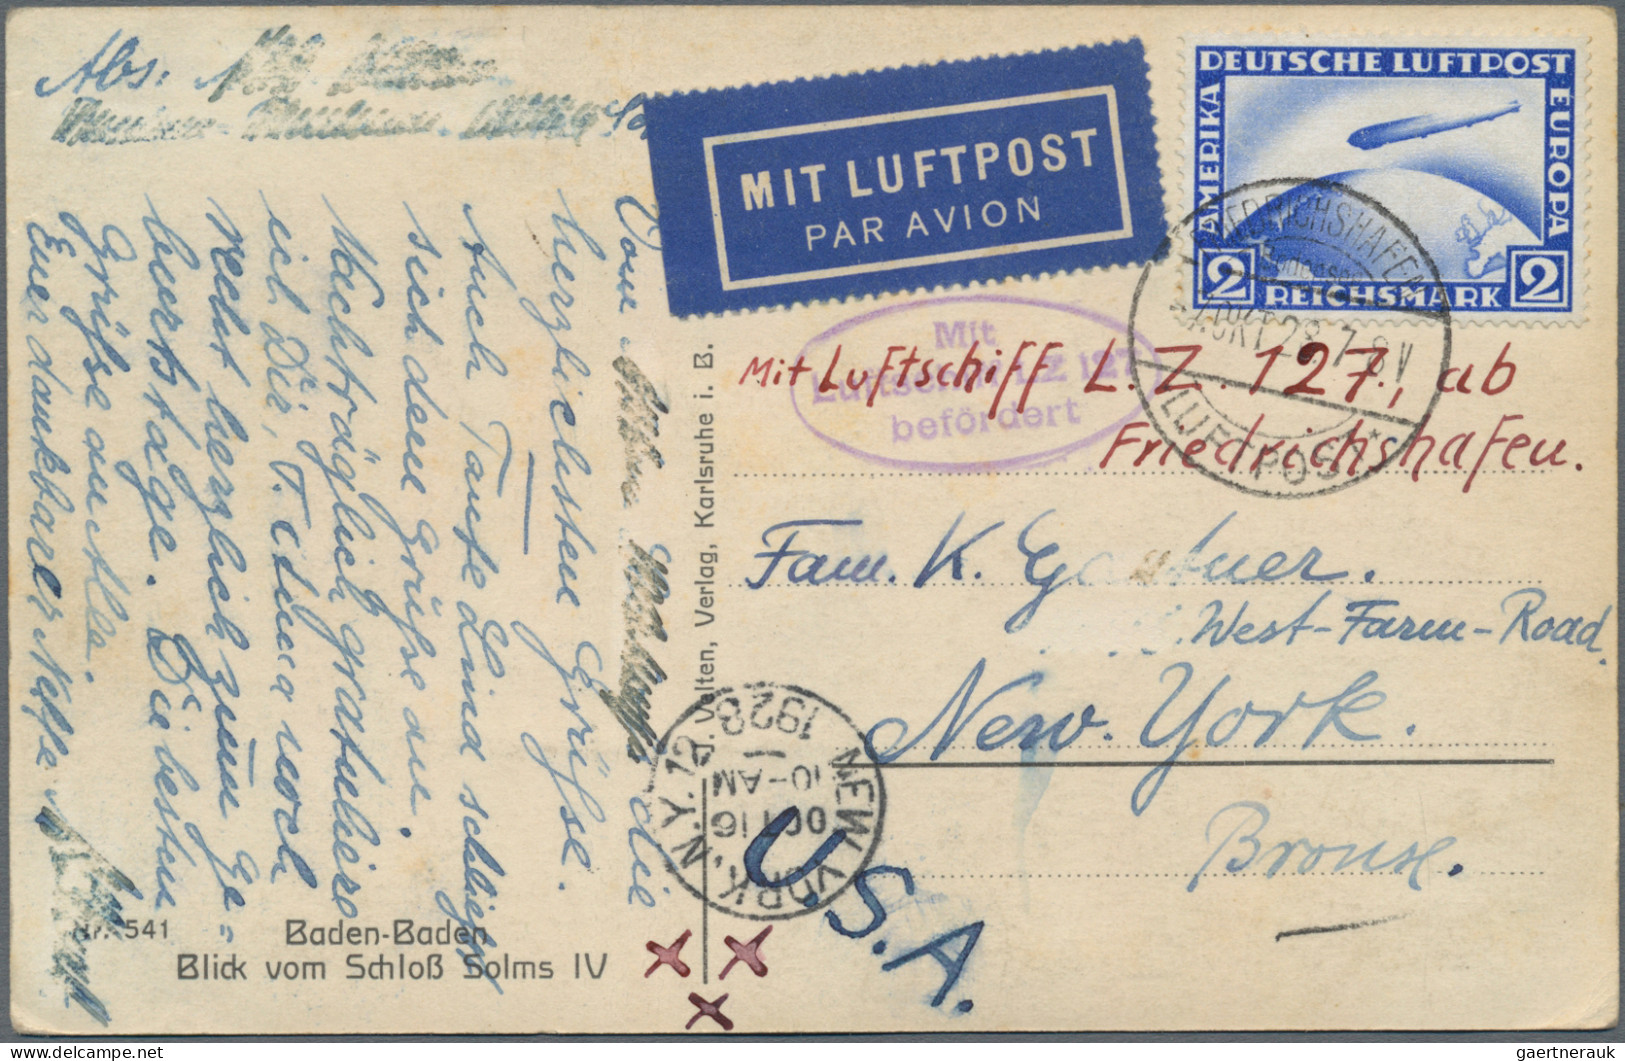 Abs:
MIT LUFTPOST
PAR AVION
DEUTSCHE LUFTPOST
AMERIKA
EUROPA
2 REICHSMARK 2
FRIEDRICHSHAFEN
Bodensee
OKT 28 7-8V
LUFTPOST
Mit
Luftschiff LZ 127
befördert
Mit Luftschiff L.Z. 127., ab
Friedrichshafen.
Fam. K. 
West-Farm-Road.
New. York.
Bronx.
U.S.A.
NEW YORK, N.Y. 12
OCT 16
10-AM
1928
J. Velten, Verlag, Karlsruhe i. B.
Von die
herzlichsten Grüße.
Auch Tante Lina schließt
sich denn Grüße an.
Nachträglich gratuliere
ich Dir, T. noch
recht herzlich zum Ge=
burtstage. Die besten
Grüße an Alle.
Euer dankbarer Neffe
Nr. 541
Baden-Baden
Blick vom Schloß Solms IV
gaertnerauk